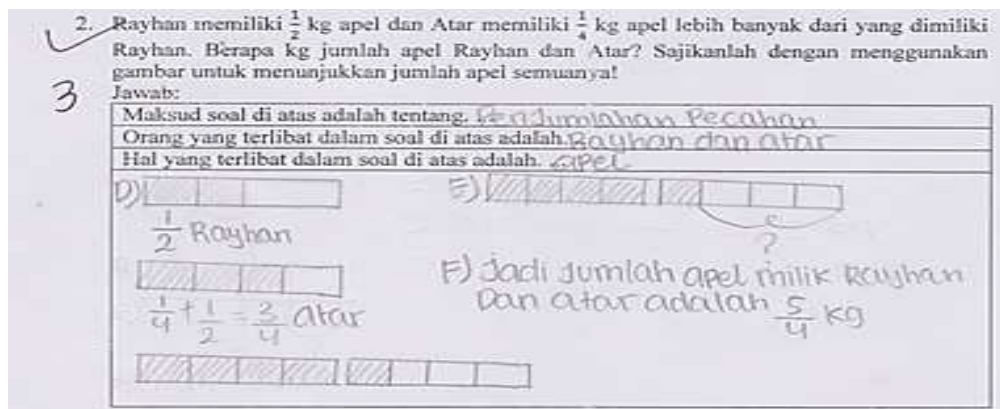 2. Rayhan memiliki 1/2 kg apel dan Atar memiliki 1/4 kg apel lebih banyak dari yang dimiliki
Rayhan. Berapa kg jumlah apel Rayhan dan Atar? Sajikanlah dengan menggunakan
gambar untuk menunjukkan jumlah apel semuanya!
3
Jawab:
Maksud soal di atas adalah tentang. Penjumlahan Pecahan
Orang yang terlibat dalam soal di atas adalah. Rayhan dan atar
Hal yang terlibat dalam soal di atas adalah. apel
D)
1/2 Rayhan
1/4 + 1/2 = 3/4 atar
E)
?
F) Jadi Jumlah apel milik Rayhan
Dan atar adalah 5/4 kg